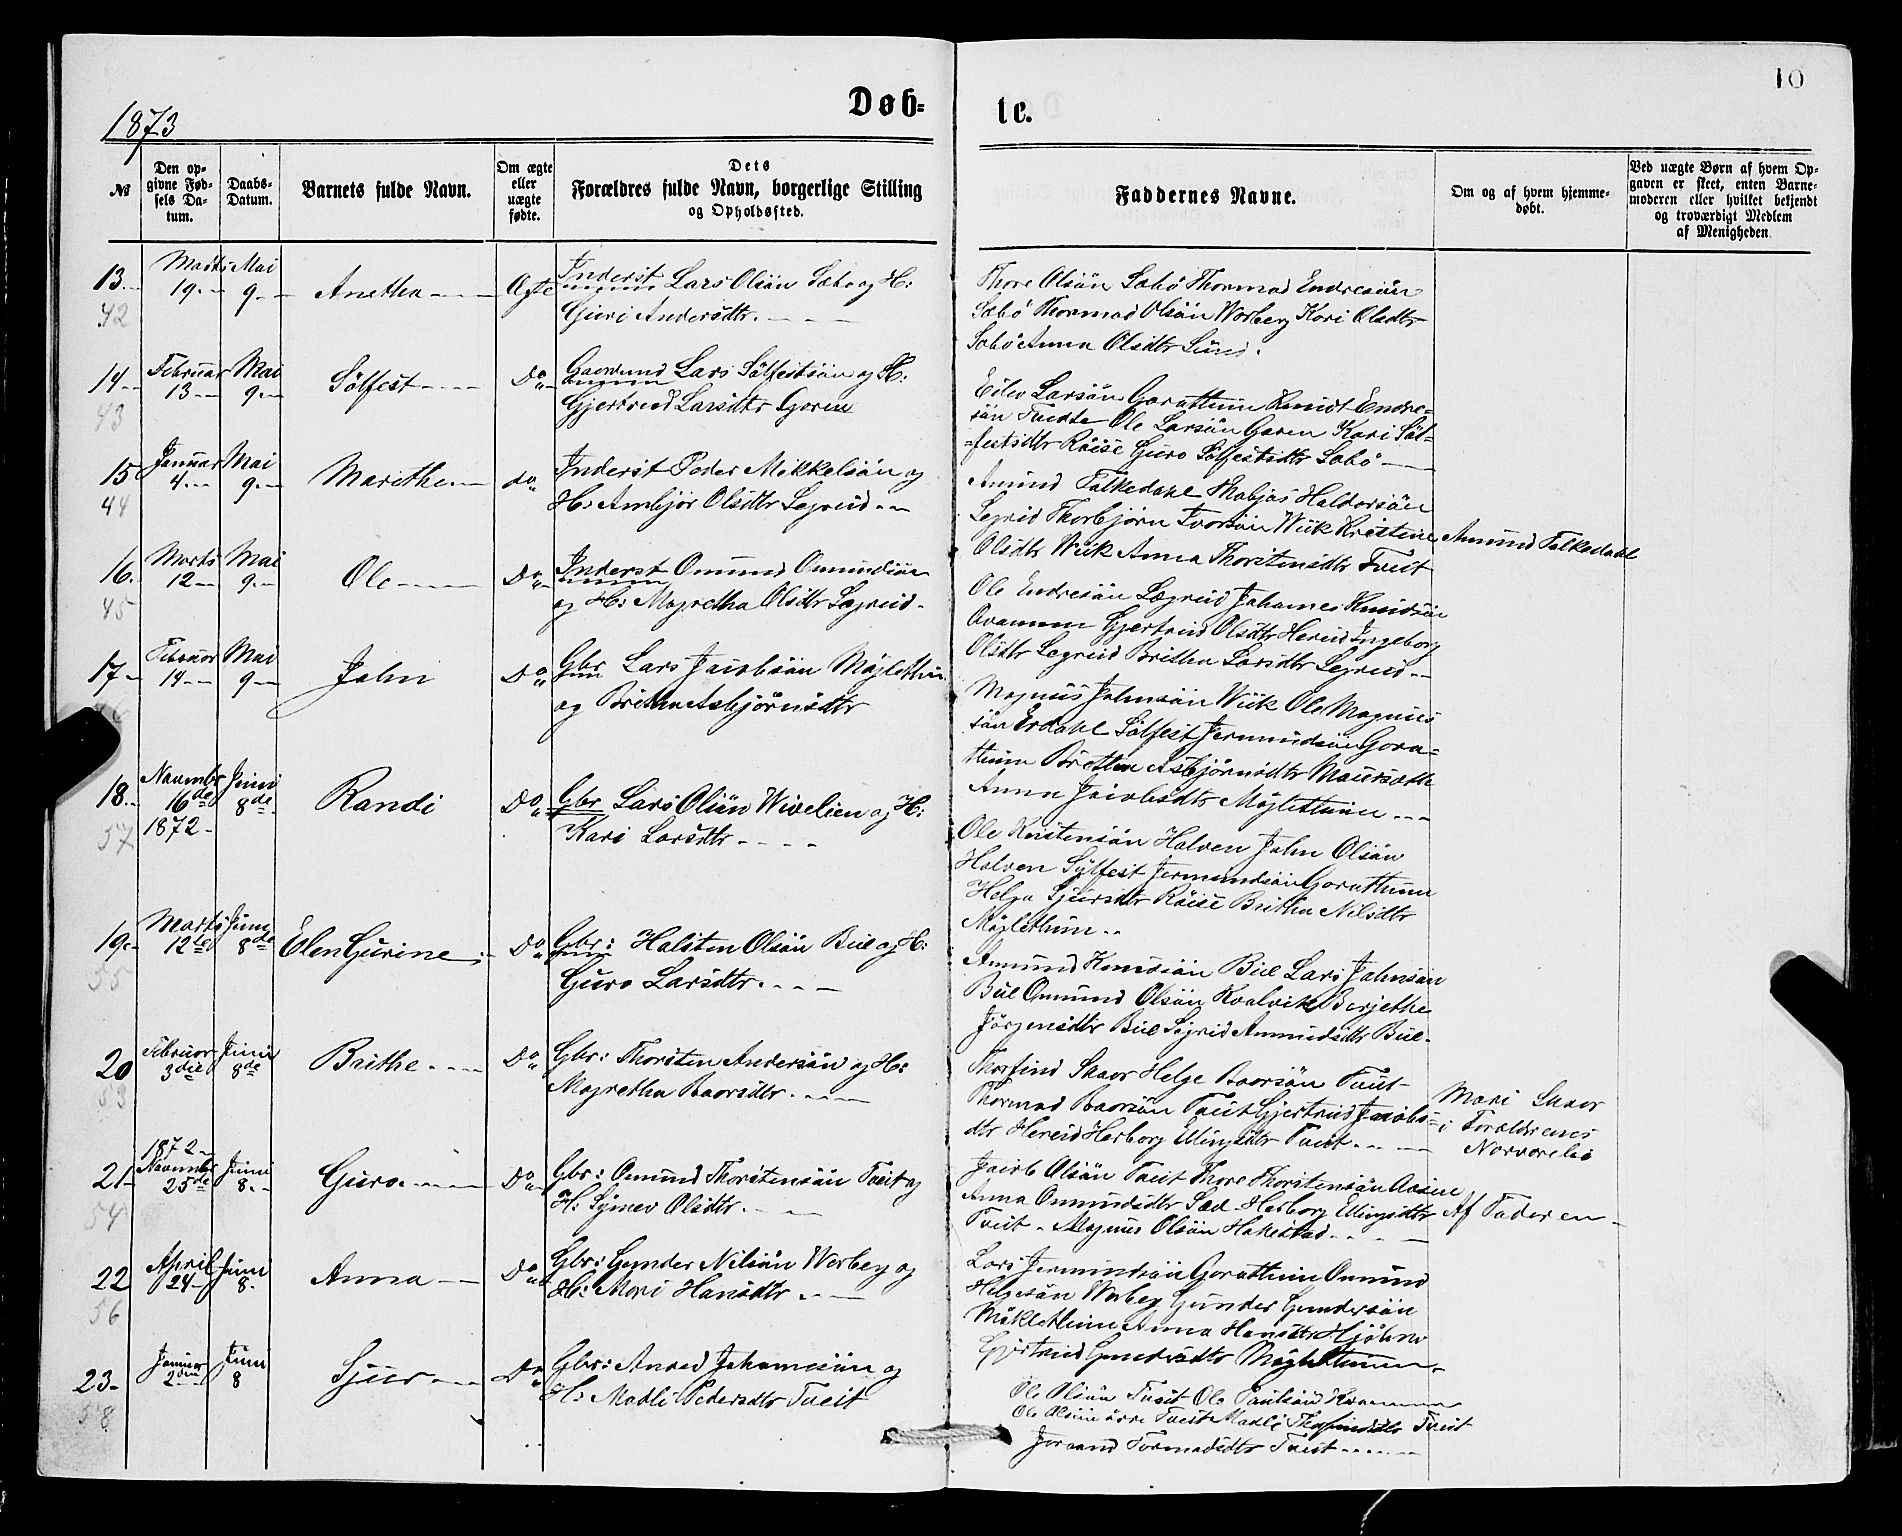 10
1873
Døb-
te.
№
Den op-
givne Fød-
sels Da-
tum.
Daabs-
Datum.
Barnets fulde Navn.
Om ægte
eller
uægte
fødte.
Dets
Forældres fulde Navn, borgerlige Stilling
og Opholdssted.
Faddernes Navne.
Om og af hvem hjemme-
døbt.
Ved uægte Børn af hvem Op-
gaven er skeet, enten Barne-
moderen eller hvilket bekjendt
og troværdigt Medlem
af Menigheden.
13
42
Marts
19
Mai
9
Anetha
Ægte
Inderst Lars Olsön Sæbø og H:
Guri Andersdtr.
Thore Olsön Sæbö Thormod Endresön
Sæbö Thormod Olsön Worberg Kari Olsdtr
Sæbö Anna Olsdtr Lund.
14
43
Februar
13
Mai
9
Sölfest
Do
Gaardmd Lars Sölfestsön og H:
Gjertrud Larsdtr Garen
Eilev Larsön Garathun Knud Endre=
sön Tveite Ole Larsön Garen Kari Söl-
=festsdtr Röise Guro Sölfestsdtr Sæbö
15
44
Januar
4
Mai
9
Marithe
do
Inderst Peder Mikkelsön og
H: Ambjör Olsdtr Legreid
Amund Falkedahl Thobjas Haldorsön
Legreid Thorbjörn Ivarsön Wiik Kristine
Olsdtr Wiik Anna Thorsteinsdtr Tveit
Amund Falkedahl
16
45
Marts
12
Mai
9
Ole
Do
Inderst Omund Omundsön
og H: Magretha Olsdtr Lægreid
Ole Endresön Lægreid Johannes Knudsön
Qvammen Gjertrud Olsdtr Hereid Ingeborg
Olsdtr Lægreid Britha Larsdtr Legreid
17
46
Februar
14
Mai
9
John
Do
Gbr Lars Jacobsön Möglethun
og Britha Asbjörnsdtr
Magnus Johnsön Wiik Ole Magnus
sön Erdahl Sölfest Jermundsön Gara=
thun Brotha Asbjörnsdtr Maursæth
Anna Jacobsdtr Möglethun
18
57
Novembr
16de
1872
Juni
8de
Randi
Do
Gbr Lars Olsön Wivelien og H:
Kari Larsdtr
Ole Kristensön Halven John Olsön
Halven Sölfest Jermundsön Garathun
Helga Sjursdtr Röise Britha Nilsdtr
Möglethun
19
55
Marts
12te
Juni
8de
Elen Gurine
Do
Gbr: Halsten Olsön Bue og H:
Guro Larsdtr.
Amund Knudsön Bue Lars Johnsön
Bue Omund Olsön Kvalvik Berjethe
Jörgensdtr Bue Sigrid Ammundsdtr Bue
20
53
Februar
3die
Juni
8de
Brithe
Do
Gbr: Thorsten Andersön og H:
Magretha Baarsdtr.
Thorfind Skaar Helge Baarsön Tveit
Thormod Baarsön Tveit Gjertrud Jacobs=
dtr Hereid Herborg Ellingsdtr Tveit
Mari Skaar
i Forældrenes
Nærværelse
21
54
1872
Novembr
25de
Juni
8
Guro
Do
Gbr: Omund Thorstensön Tveit og
H: Synev Olsdtr.
Jacob Olsön Tveit Thore Thorstensön Aasen
Anna Omundsdtr Sæd Herborg Ellingsdtr
Tveit Magnus Olsön Hakestad
Af Faderen
22
56
April
24
Juni
8
Anna
Do
Gbr: Gunder Nilsön Worberg og
H: Mari Hansdtr.
Lars Jermundsön Garathun Omund
Helgesön Worberg Gunder Gundersön
Möklethun Anna Hansdtr Hjölmo
Gjertrud Gundersdtr Möglethun
23
58
Januar
2den
Juni
8
Sjur
Do
Gbr: Anved Johannesön og
H: Madli Pedersdtr Tveit
Ole Olsön Tveit Ole Paulsön Kvammen
Ole Olsön övre Tveit Madli Thorfinsdtr Tveit
Joraand Tormodsdtr Tveit